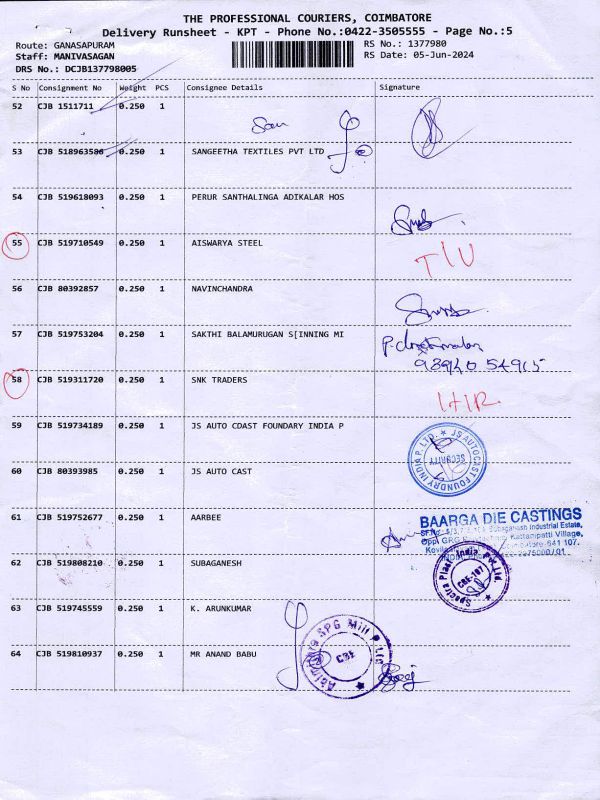 THE PROFESSIONAL COURIERS, COIMBATORE
Delivery Runsheet - KPT - Phone No.:0422-3505555 - Page No.:5
Route: GANASAPURAM RS No.: 1377980
Staff: MANIVASAGAN RS Date: 05-Jun-2024
DRS No.: DCJB137798005
S No Consignment No Weight PCS Consignee Details Signature
52 CJB 1511711 0.250 1
53 CJB 518963586 0.250 1 SANGEETHA TEXTILES PVT LTD
54 CJB 519618093 0.250 1 PERUR SANTHALINGA ADIKALAR HOS
55 CJB 519710549 0.250 1 AISWARYA STEEL
T/U
56 CJB 80392857 0.250 1 NAVINCHANDRA
57 CJB 519753204 0.250 1 SAKTHI BALAMURUGAN S[INNING MI
58 CJB 519311720 0.250 1 SNK TRADERS
59 CJB 519734189 0.250 1 JS AUTO CDAST FOUNDARY INDIA P
JS AUTOCAST FOUNDRY INDIA P. LTD.
SECURITY
60 CJB 80393985 0.250 1 JS AUTO CAST
61 CJB 519752677 0.250 1 AARBEE
BAARGA DIE CASTINGS
Industrial Estate,
Village,
641 107.
62 CJB 519808210 0.250 1 SUBAGANESH
Spectra Plast India Pvt.Ltd.
CBE-107
63 CJB 519745559 0.250 1 K. ARUNKUMAR
SPG Mill P Ltd
CBE
64 CJB 519810937 0.250 1 MR ANAND BABU